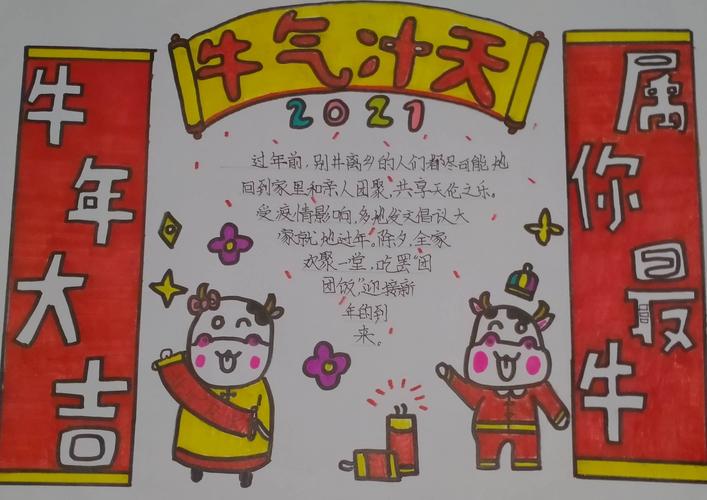 牛气冲天
2021
牛年大吉
过年前，别井离乡的人们都尽可能地
回到家里和亲人团聚，共享天伦之乐。
受疫情影响，多地发文倡议大
家就地过年。除夕，全家
欢聚一堂，吃罢“团
团饭”，迎接新
年的到
来。
属你最牛